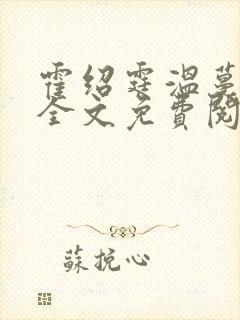 霍绍霆温蔓
全文免费阅
蘇挽心